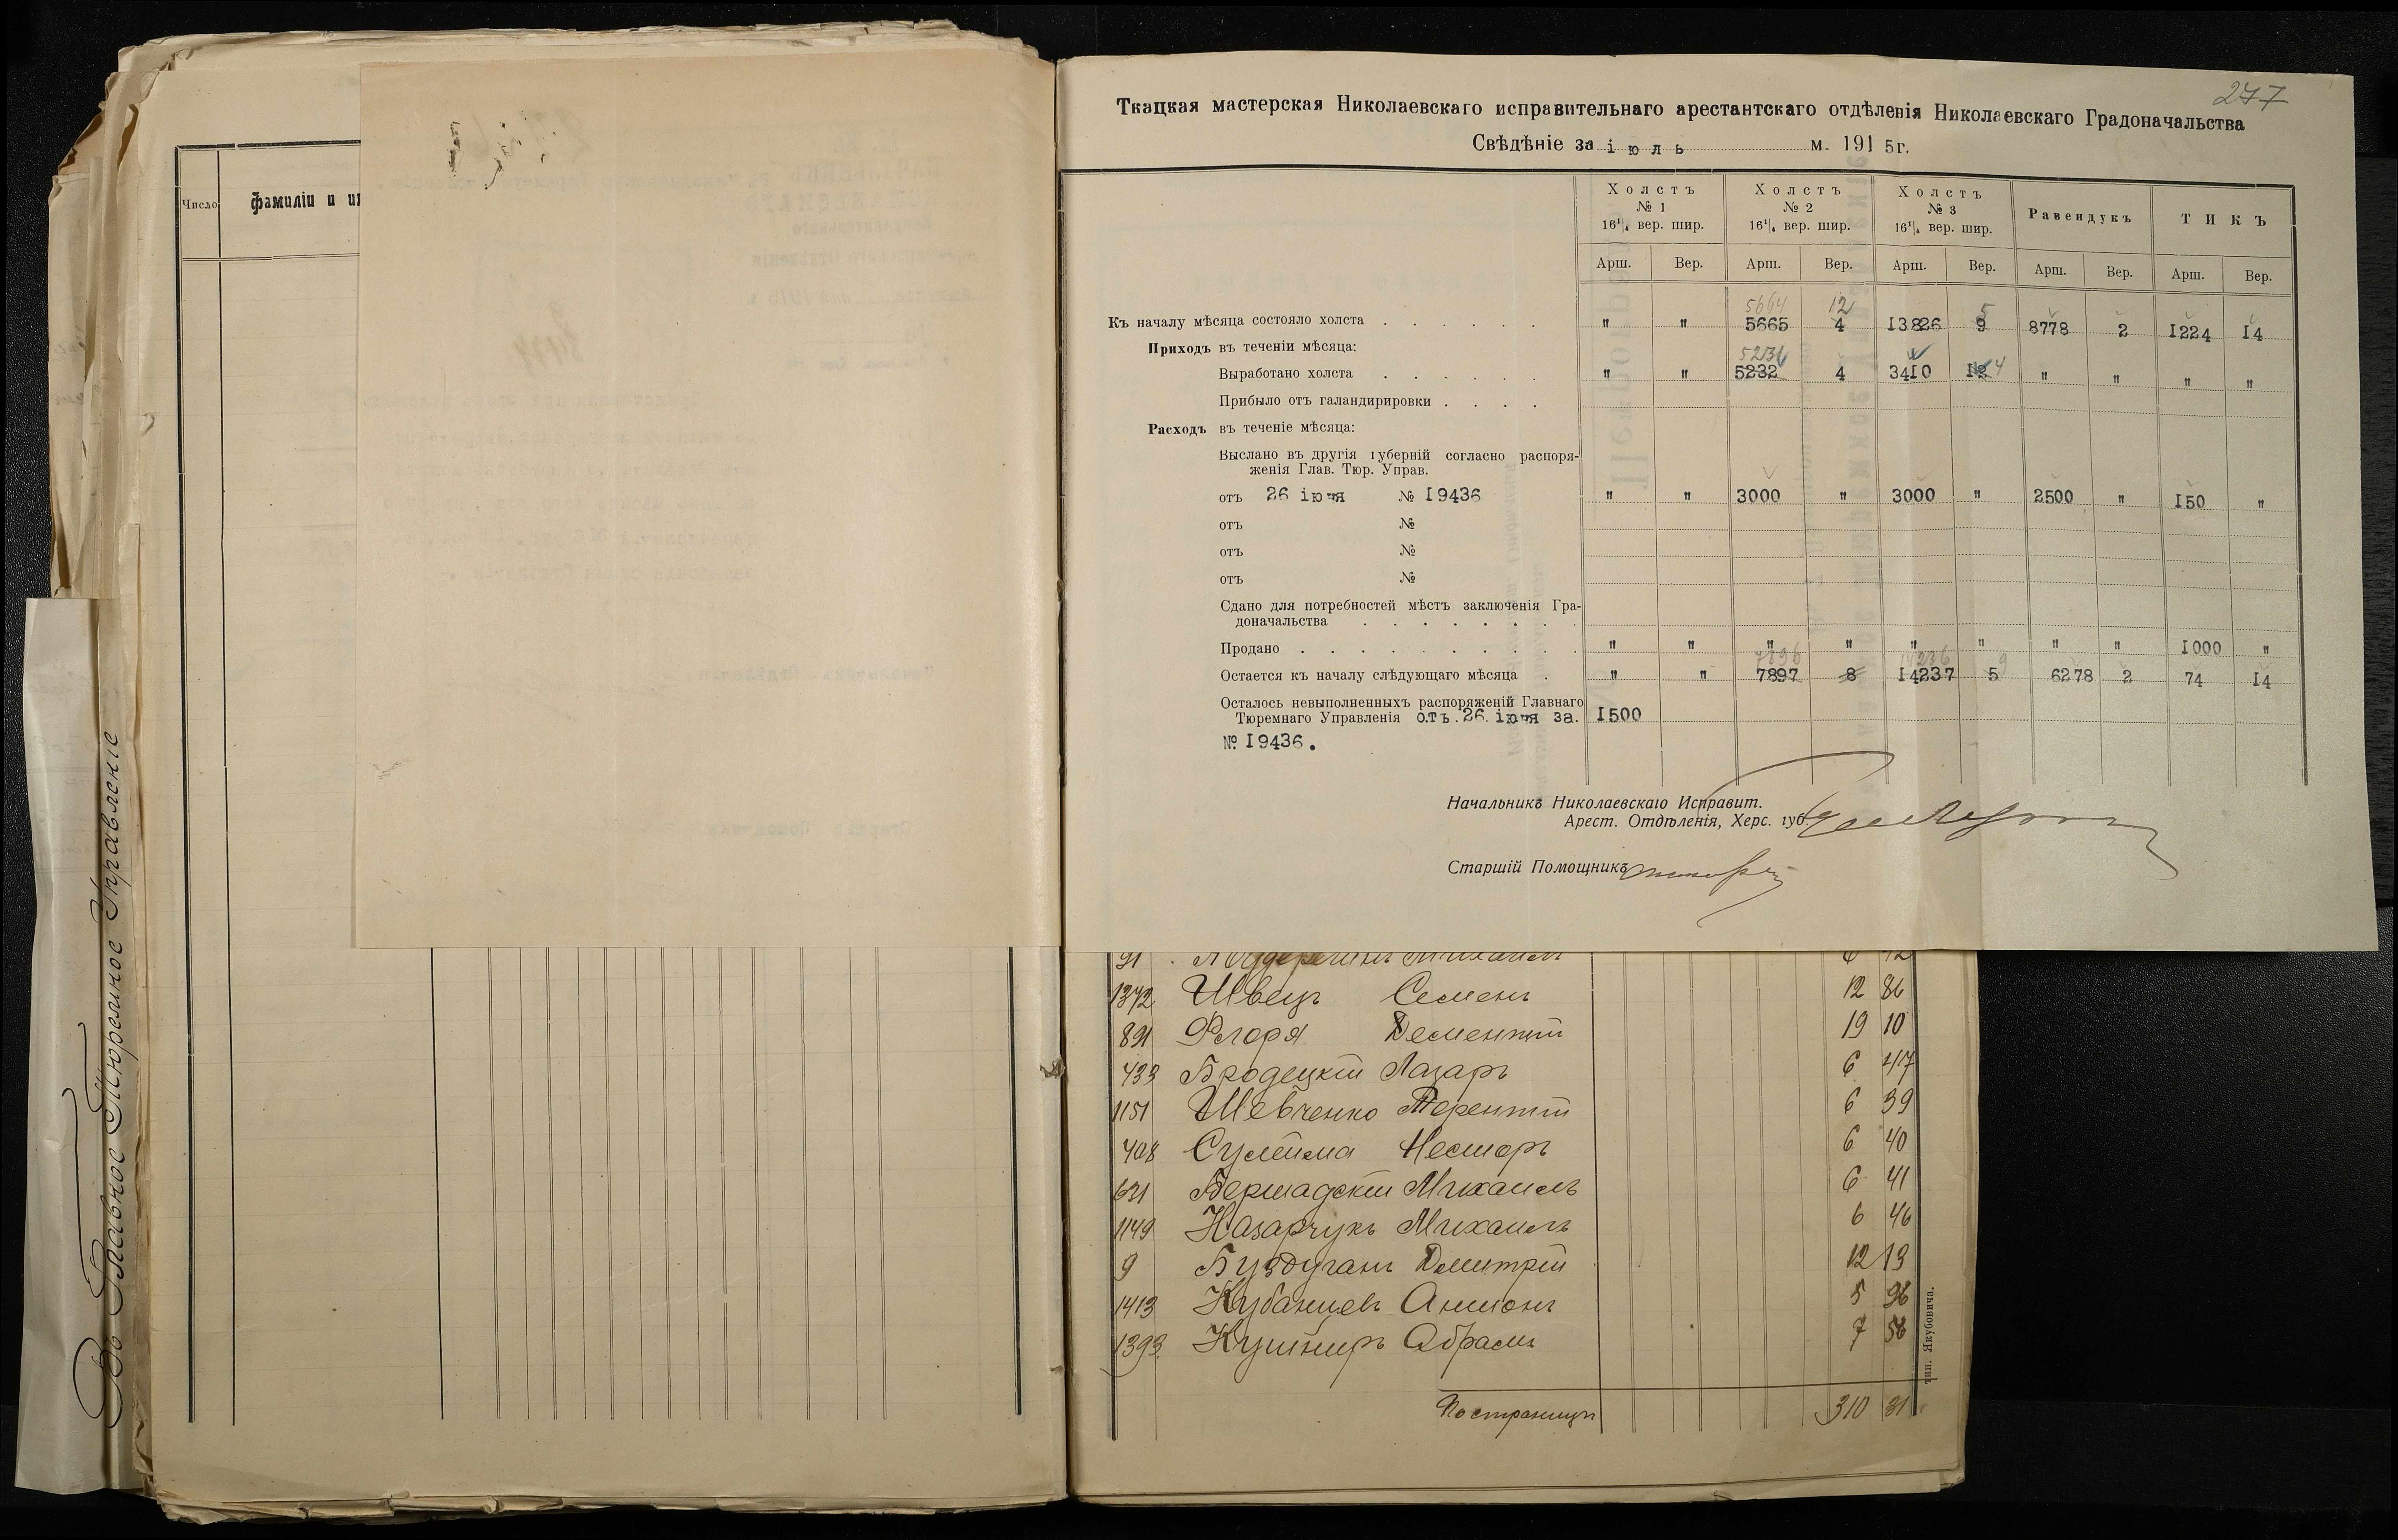 Число
фамиліи и и
Въ Главное Тюремное Управленіе
277
Ткацкая мастерская Николаевскаго исправительнаго арестантскаго отдѣленія Николаевскаго Градоначальства
Свѣдѣніе за іюль м. 1915г.
Холстъ № 1 16¹/₄ вер. шир. Холстъ № 2 16¹/₄ вер. шир. Холстъ № 3 16¹/₄ вер. шир. Равендукъ ТИКЪ
Арш. Вер. Арш. Вер. Арш. Вер. Арш. Вер. Арш. Вер.
5664 12 5
Къ началу мѣсяца состояло холста . . . . . . " " 5665 4 13826 9 8778 2 1224 14
Приходъ въ теченіи мѣсяца:
5231
Выработано холста . . . . . . " " 5232 4 3410 12 4 " " " "
Прибыло отъ галандирировки . . . .
Расходъ въ теченіе мѣсяца:
Выслано въ другія губерній согласно распоря-
женія Глав. Тюр. Управ.
отъ 26 іюня № 19436 " " 3000 " 3000 " 2500 " 150 "
отъ №
отъ №
отъ №
Сдано для потребностей мѣстъ заключенія Гра-
доначальства . . . . . . . .
Продано . . . . . . . . . . " " " " " " " " 1000 "
7896 14236 9
Остается къ началу слѣдующаго мѣсяца . " " 7897 8 14237 5 6278 2 74 14
Осталось невыполненныхъ распоряженій Главнаго
Тюремнаго Управленія отъ 26 іюня за 1500
№ 19436.
Начальникъ Николаевскаго Исправит.
Арест. Отдѣленія, Херс. губ.
Старшій Помощникъ
91 Михаилъ 6 12
1372 Швецъ Семенъ 12 86
891 Флоря Дементій 19 10
433 Бродецкій Лазарь 6 47
1151 Шевченко Терентій 6 39
408 Сулима Несторъ 6 40
631 Бершадскій Михаилъ 6 41
1149 Назарчукъ Михаилъ 6 46
9 Буздуганъ Дмитрій 12 13
1413 Кубанцевъ Антонъ 5 96
1393 Кушниръ Абрамъ 7 58
По страницѣ 310 31
тип. Якубовича.